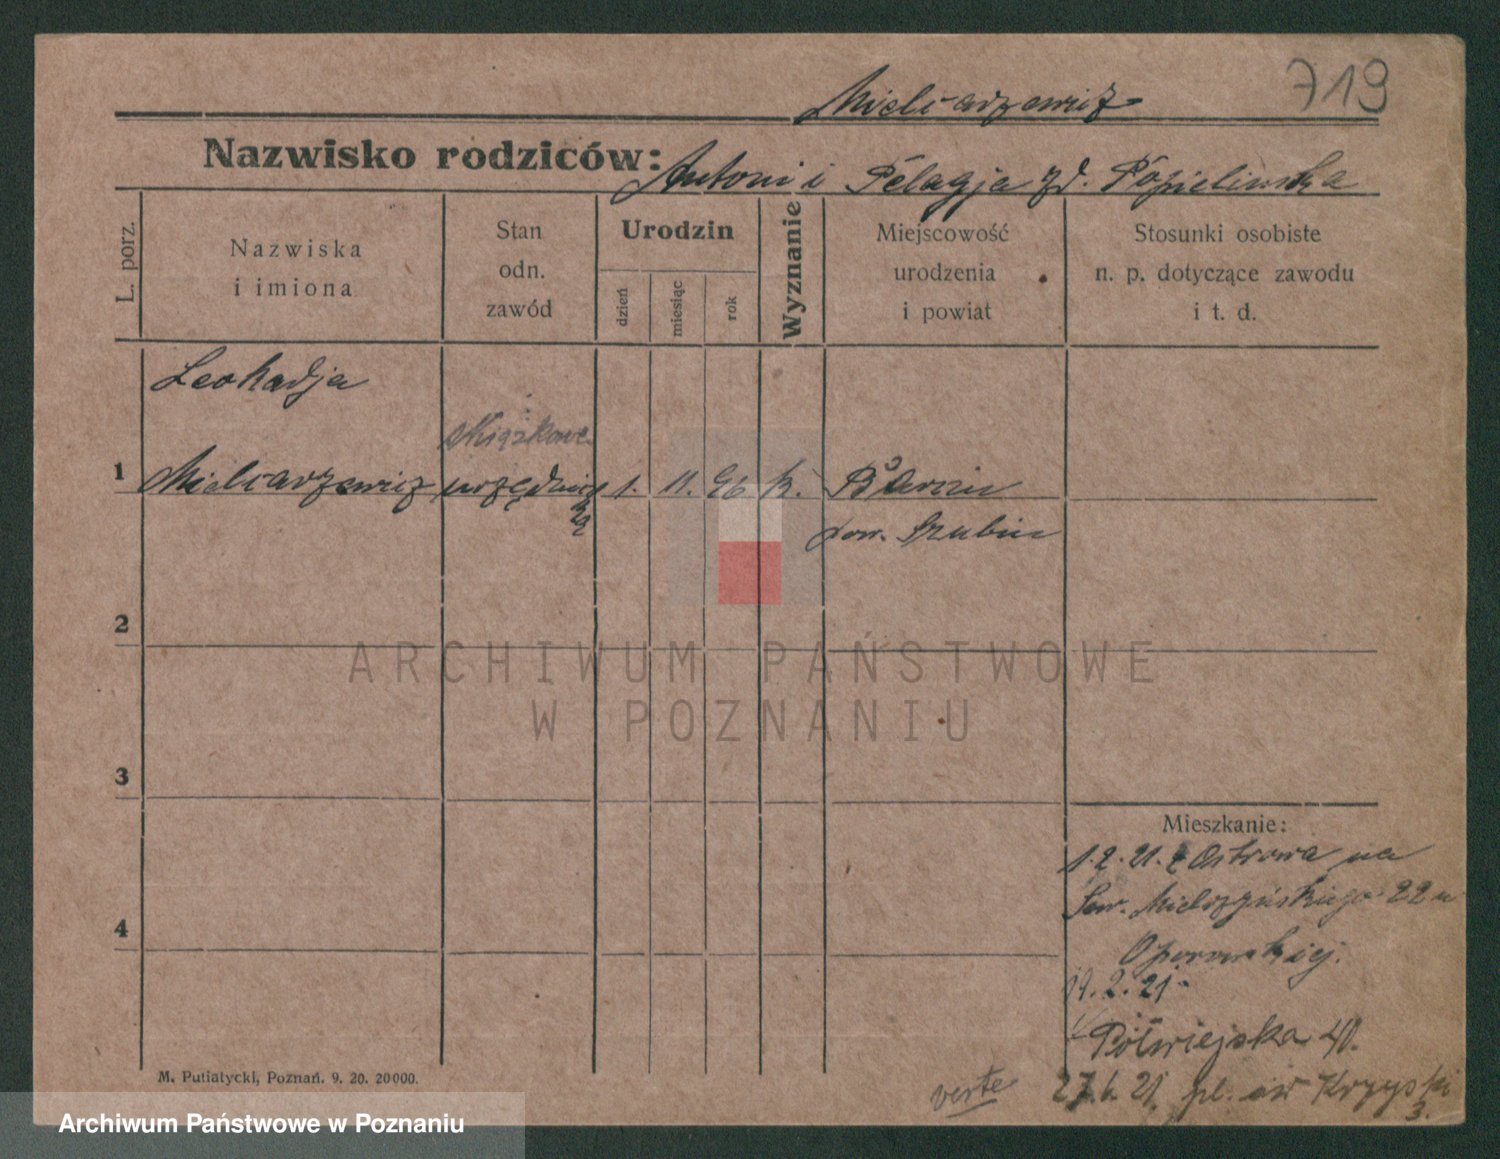 719
Mielcarzewicz
Nazwisko rodziców: Antoni i Pelagja zd. Popielinska
L. porz.
Nazwiska
i imiona
Stan
odn.
zawód
Urodzin
dzień
miesiąc
rok
Wyznanie
Miejscowość
urodzenia
i powiat
Stosunki osobiste
n. p. dotyczące zawodu
i t. d.
Leokadja
1 Mielcarzewicz
urzędnicz
ką
1. 11. 96 k.
pow. Szubin
2
3
4
ARCHIWUM PAŃSTWOWE
W POZNANIU
Mieszkanie:
1.2.21. z Ostrowa na
Sew. Mielżyńskiego 22 u
Oporowskiej.
19.2.21.
Półwiejska 40.
27.6.21. pl. św Krzyski
3.
verte
M. Putiatycki, Poznań. 9. 20. 20000.
Archiwum Państwowe w Poznaniu